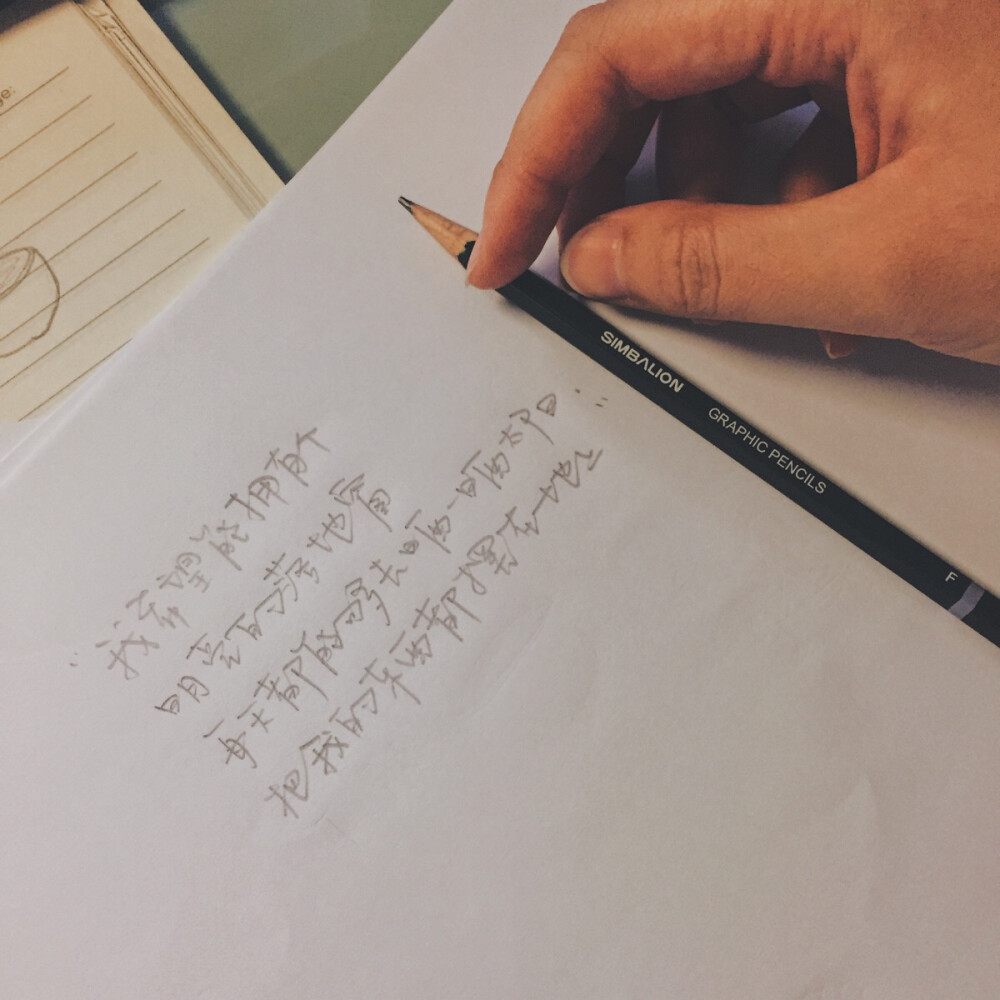 ge:
SIMBALION GRAPHIC PENCILS F
“我希望能拥有个
明亮的落地窗
每天都能够去晒一晒太阳”
把我的东西都摆在 地上